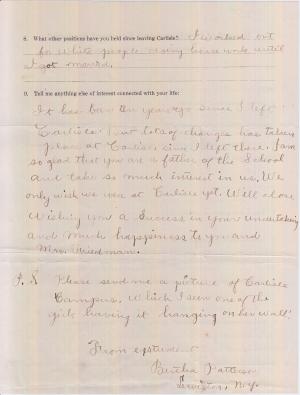 8. What other positions have you held since leaving Carlisle? I worked out
for white people doing house work until
I got married.
9. Tell me anything else of interest connected with your life:
It has been ten years since I left
Carlisle. But lots of changes has taken
place at Carlisle since I left there. I am
so glad that you are a father of the School
and take so much interest in us. We
only wish we were at Carlisle yet. Will close
Wishing you a Success in your undertaking
and much happiness to you and
Mrs. Friedman.
P. S Please send me a picture of Carlisle
Campus. Which I seen one of the
girls having it hanging on her wall.
From exstudent
Bertha Patterson
Lewiston, N.Y.